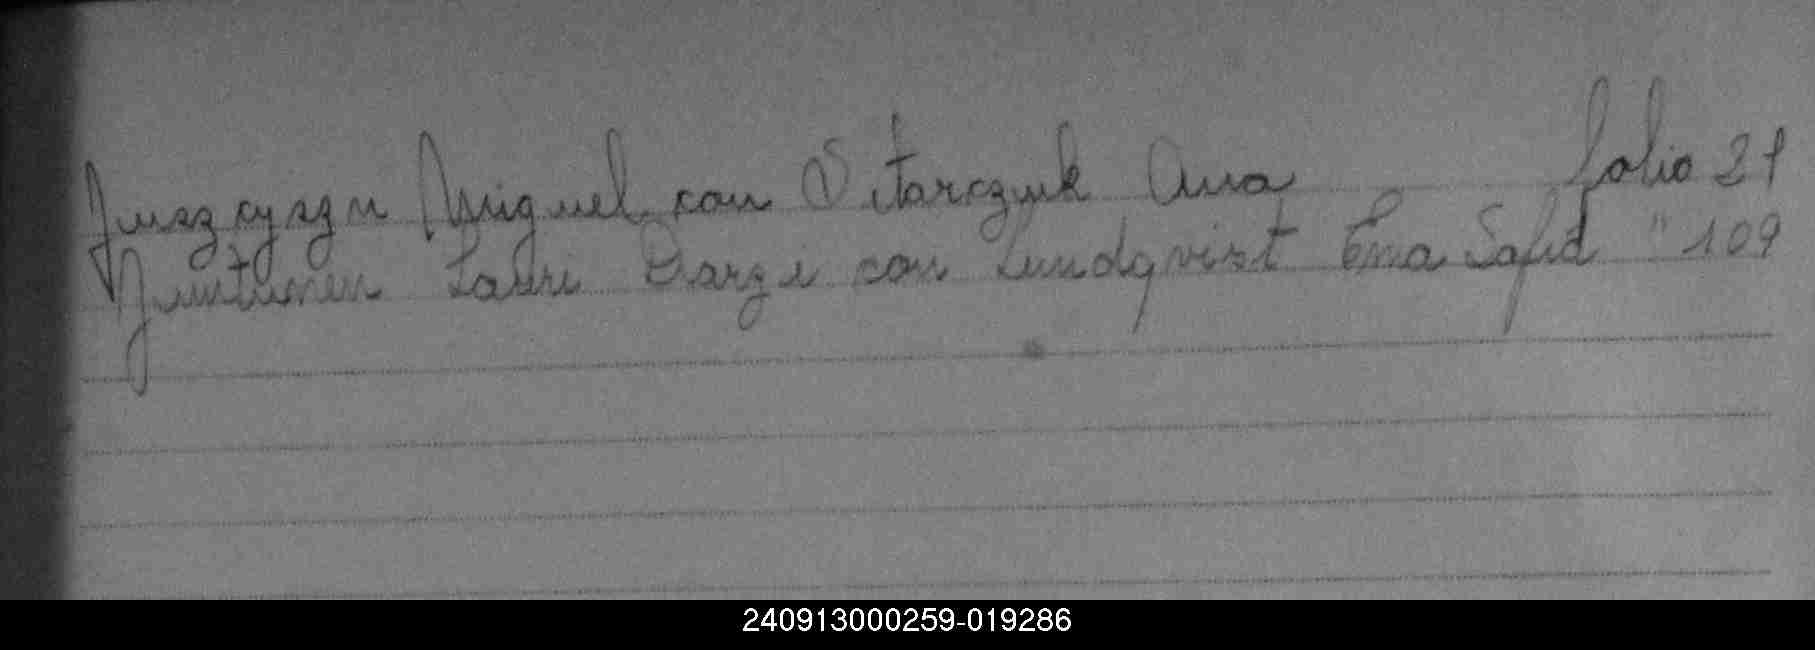 Juszcyszn Miguel con Sitarczuk Ana folio 21
Juntunen Lauri Darzi con Lundqvist Ema Safid " 109
240913000259-019286